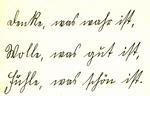 Denke, was wahr ist,
Wolle, was gut ist,
Fühle, was schön ist.